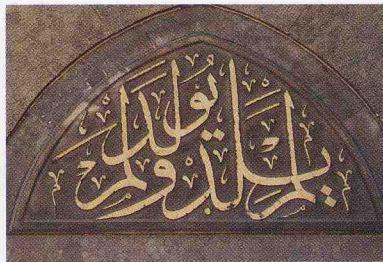 لم يلد ولم يولد